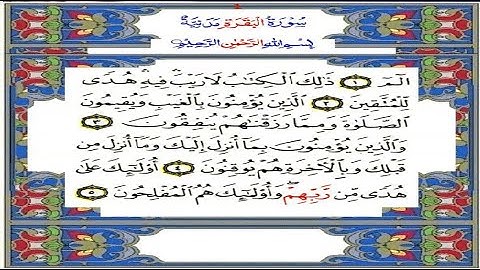 سورة البقرة مدنية
بسم الله الرحمن الرحيم
الٓمٓ ۝١ ذَٰلِكَ الْكِتَٰبُ لَا رَيْبَ فِيهِ هُدًى
لِّلْمُتَّقِينَ ۝٢ الَّذِينَ يُؤْمِنُونَ بِالْغَيْبِ وَيُقِيمُونَ
الصَّلَوٰةَ وَمِمَّا رَزَقْنَٰهُمْ يُنفِقُونَ ۝٣
وَالَّذِينَ يُؤْمِنُونَ بِمَا أُنزِلَ إِلَيْكَ وَمَا أُنزِلَ مِن
قَبْلِكَ وَبِالْآخِرَةِ هُمْ يُوقِنُونَ ۝٤ أُوْلَٰٓئِكَ عَلَىٰ
هُدًى مِّن رَّبِّهِمْ وَأُوْلَٰٓئِكَ هُمُ الْمُفْلِحُونَ ۝٥